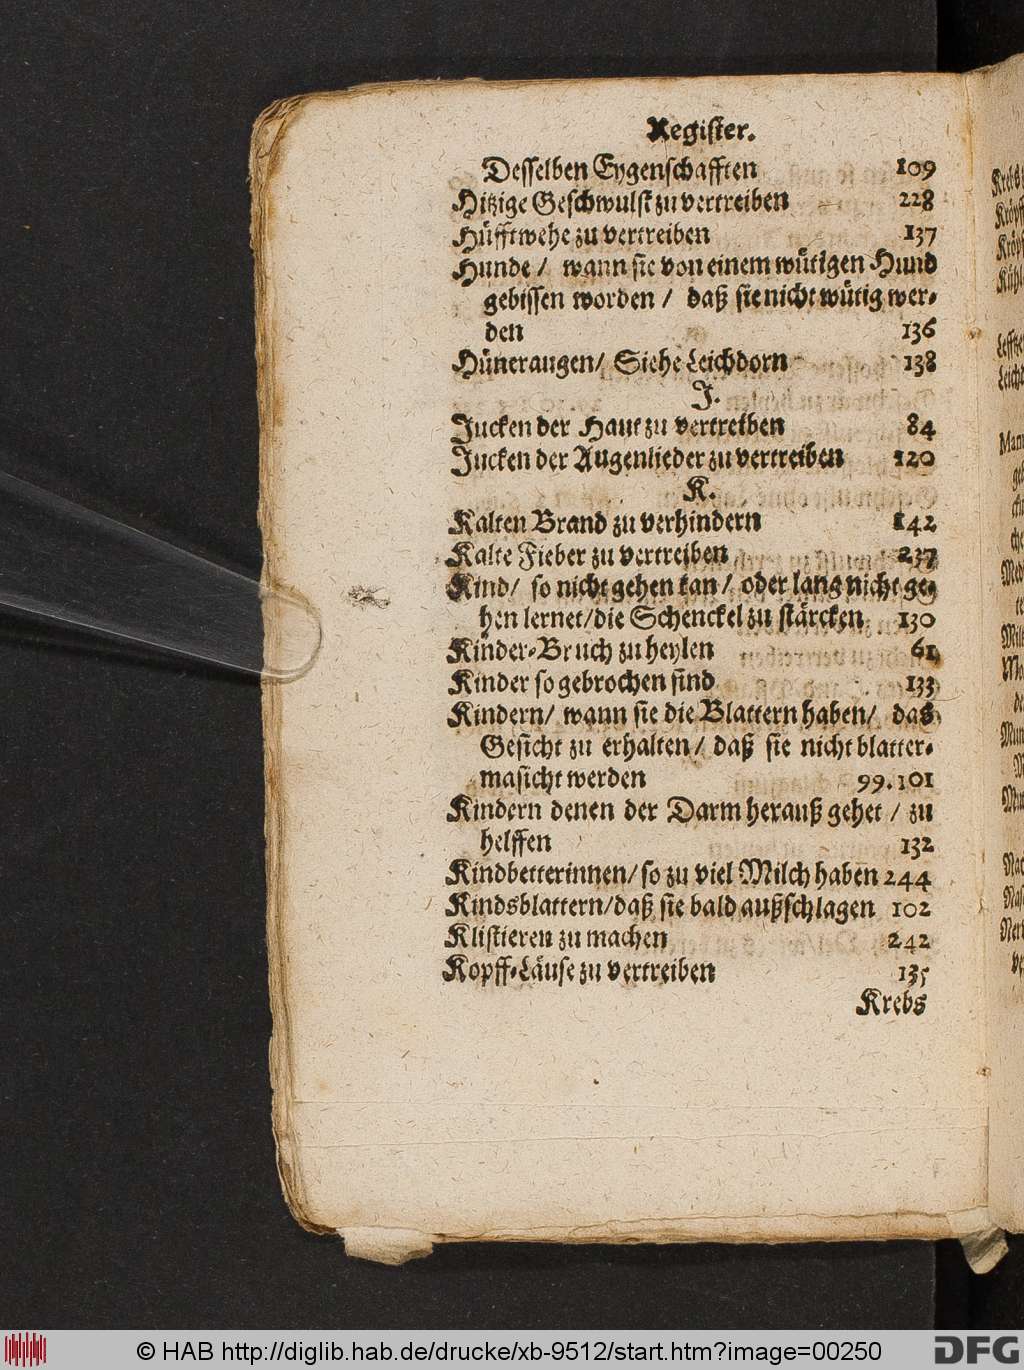 Register.
Desselben Eygenschafften 109
Hitzige Geschwulst zu vertreiben 228
Hüfftwehe zu vertreiben 137
Hunde / wann sie von einem wütigen Hund
gebissen worden / daß sie nicht wütig wer-
den 136
Hüneraugen / Siehe Leichdorn 138
J.
Jucken der Haut zu vertreiben 84
Jucken der Augenlieder zu vertreiben 120
K.
Kalten Brand zu verhindern 142
Kalte Fieber zu vertreiben 237
Kind / so nicht gehen kan / oder lang nicht ge-
hen lernet / die Schenckel zu stärcken 130
Kinder-Bruch zu heylen 61
Kinder so gebrochen sind 133
Kindern / wann sie die Blattern haben / das
Gesicht zu erhalten / daß sie nicht blatter-
masicht werden 99. 101
Kindern denen der Darm herauß gehet / zu
helffen 132
Kindbetterinnen / so zu viel Milch haben 244
Kindsblattern / daß sie bald außschlagen 102
Klistieren zu machen 242
Kopff-Läuse zu vertreiben 135
Krebs
© HAB http://diglib.hab.de/drucke/xb-9512/start.htm?image=00250
DFG